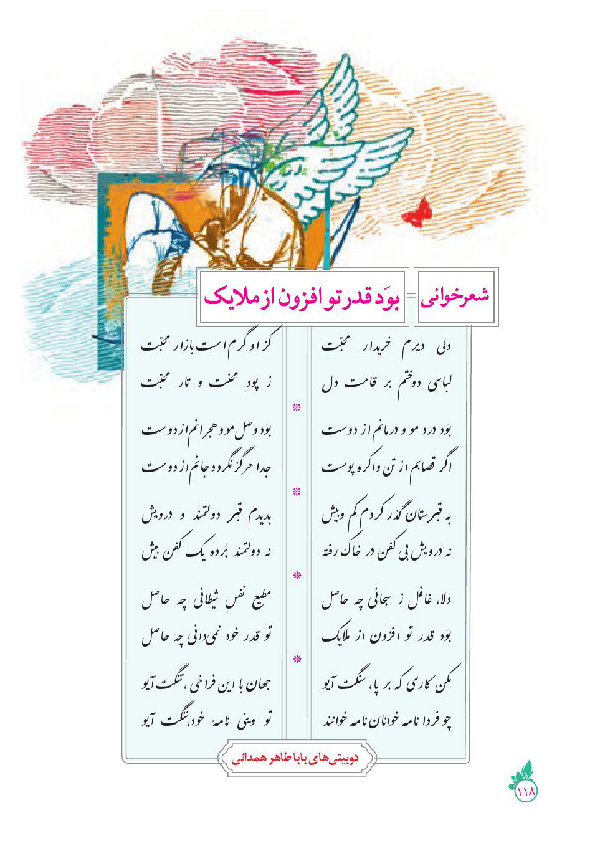 شعرخوانی
بوَد قدر تو افزون از ملایک
دلی دیرم خریدار محبّت کز او گرم است بازار محبّت
لباسی دوختم بر قامت دل ز پود محنت و تار محبّت
*
بود درد مو و درمانم از دوست بود وصل مو و هجرانم از دوست
اگر قصابم از تن واکره پوست جدا هرگز نگردد جانم از دوست
*
به قبرستان گذر کردم کم وبیش بدیدم قبر دولتمند و درویش
نه درویش بی کفن در خاک رفته نه دولتمند بُرده یک کفن بیش
*
دلا، غافل ز سبحانی چه حاصل مطیع نفس شیطانی چه حاصل
بود قدر تو افزون از ملایک تو قدر خود نمی‌دانی چه حاصل
*
مکن کاری که بر پا، سنگت آیو جهان با این فراخی، تنگت آیو
چو فردا نامه خوانان نامه خوانند تو وینی نامهٔ خود، ننگت آیو
دوبیتی‌های بابا طاهر همدانی
۱۱۸